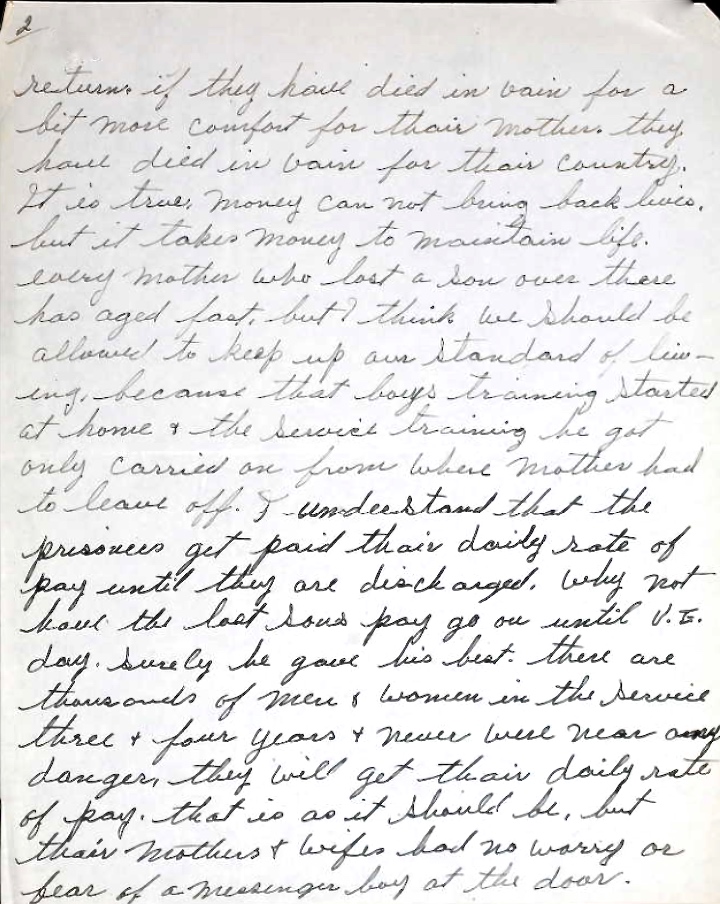 2
return. if they have died in vain for a
bit more comfort for thair mother. they
have died in vain for thair country.
It is true, money can not bring back lives.
but it takes money to maintain life.
every mother who lost a son over there
has aged fast, but I think we should be
allowed to keep up our standard of liv-
ing, because that boys training started
at home & the service training he got
only carried on from where mother had
to leave off. I understand that the
prisoners get paid thair daily rate of
pay until they are discharged. Why not
have the lost sons pay go on until V.E.
day. Surely he gave his best. there are
thousands of men & women in the service
three & four years & never were near any
danger, they will get thair daily rate
of pay. that is as it should be, but
thair mothers & wifes had no worry or
fear of a messenger boy at the door.